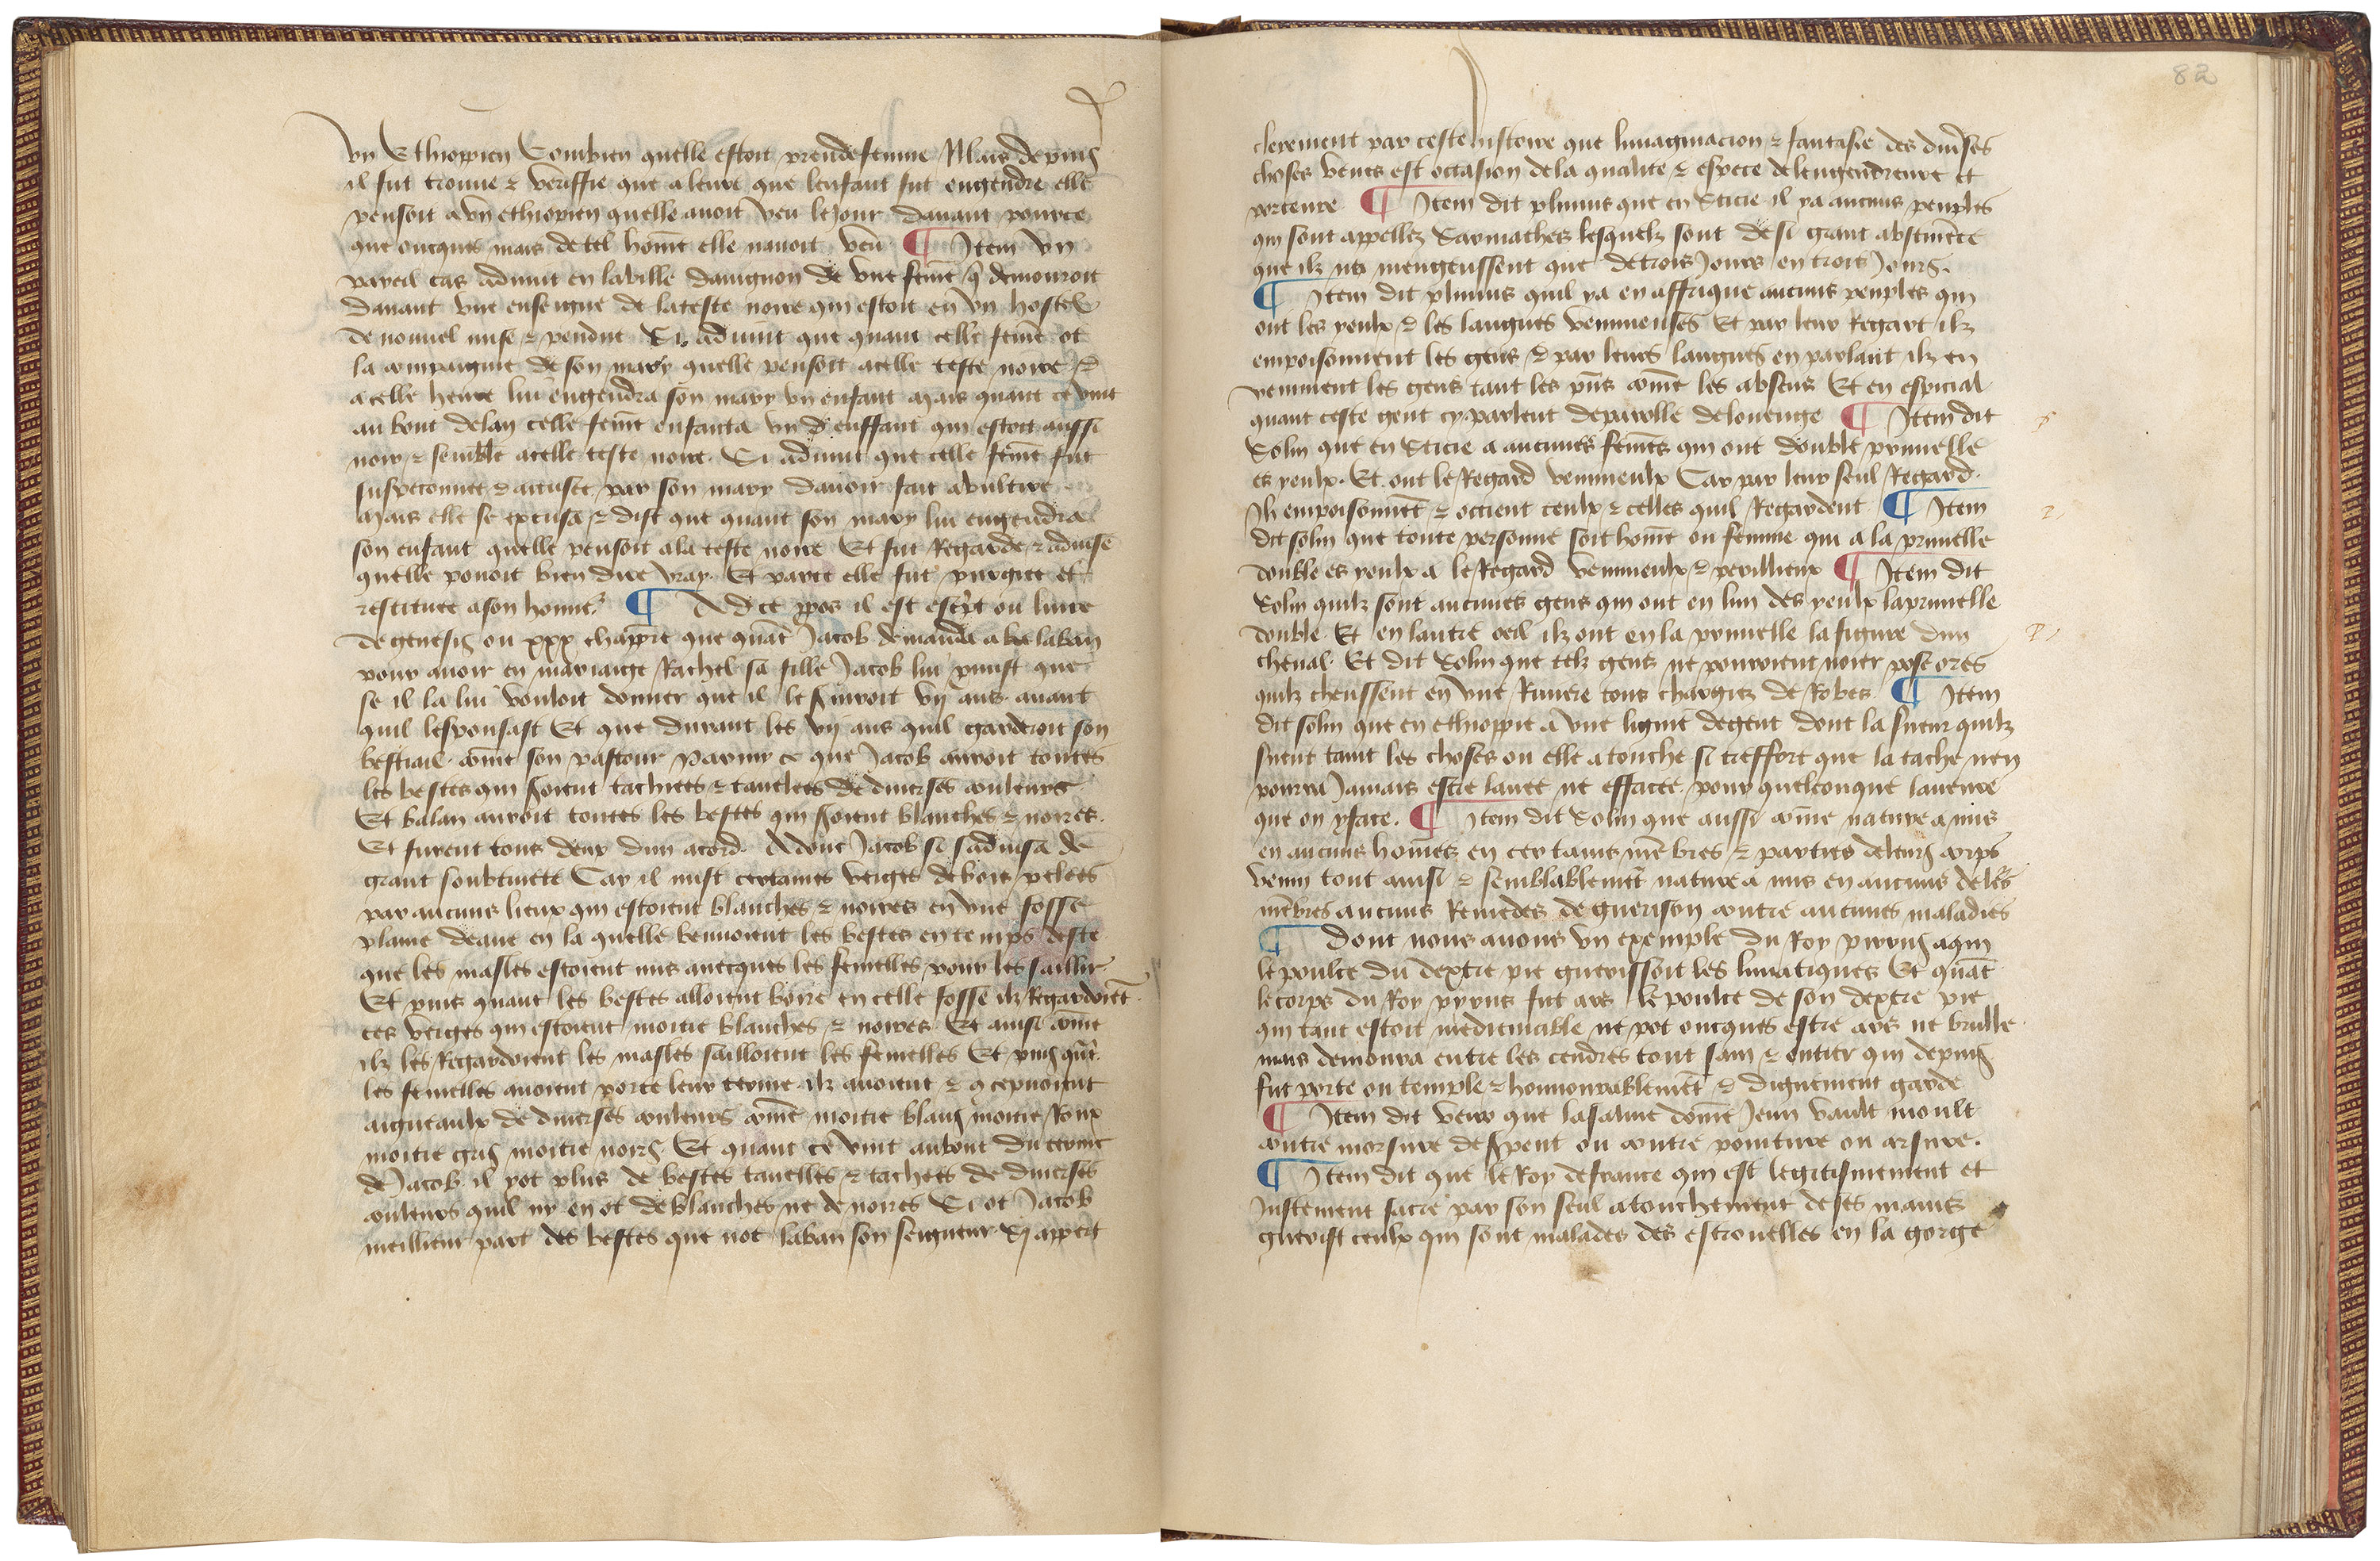 vn Ethiopien Combien quelle estoit preudefemme Mais depuis
il fut trouue et veriffie que aleure que lenfant fut engendre elle
pensoit a vn ethiopien quelle auoit veu le Jour dauant pource
que oncques mais de tel home elle nauoit veu ¶ Item vn
pareil cas aduint en la ville dauignon de vne feme q demouroit
dauant vne enseigne de la teste noire qui estoit en vn hostel
de nouuel mise et pendue Si aduint que quant celle feme ot
la compaignie de son mary quelle pensoit a celle teste noire et
a celle heure lui engendra son mary vn enfant Mais quant ce vint
au bout de lan celle feme enfanta vn enffant qui estoit aussi
noir et semble a celle teste noire Si aduint que celle feme fut
suspeconnee et accusee par son mary dauoir fait adultire
Mais elle se excusa et dist que quant son mary lui engendra
son enfant quelle pensoit a la teste noire Et fut Regarde et aduise
quelle pouoit bien dire vray Et parce elle fut purgiee et
restituee a son honne ¶ Ad ce ppos il est escpt ou liure
de genesis ou xxx chapre que quat Jacob demanda a laban
pour auoir en mariaige Rachel sa fille Jacob lui pmist que
se il la lui vouloit donner que il le Suiroit vij ans auant
quil lespousast Et que durant les vij ans quil garderoit son
bestiail come son pastour Parmy ce que Jacob auroit toutes
les bestes qui Soient tachiees et tauelees de diuerses couleurs
Et balan auroit toutes les bestes qui Soient blanches et noires
Et furent tous deux dun acord Adonc Jacob si saduisa de
grant soubtiuete Car il mist certaines verges de bois pelees
par aucuns lieux qui estoient blanches et noires en vne fosse
plaine deaue en la quelle beuuoient les bestes en temps deste
que les masles estoient mis auecques les femelles pour les saillir
Et puis quant les bestes alloient boire en celle fosse ilz Regardoiet
ces verges qui estoient moitie blanches et noires Et ainsi come
ilz les Regardoient les masles sailloient les femelles Et puis qut
les femelles auoient porte leur terme ilz auoient et
aigneaulx de diuerses couleurs come moitie blans moitie Roux
moitie gris moitie noirs Et quant ce vint aubout du terme
de Jacob il yot plus de bestes tauelles et tachees de diuerses
couleurs quil ny en ot de blanches ne de noires Si ot Jacob
meilleur part des bestes que not laban son seigneur Sy appert
82
clerement par ceste istoire que limaginacion et fantasie des diuses
choses veues est occasion de la qualite et espece de lengendreure et
porteure ¶ Item dit plinius que en Sticie il ya aucuns peuples
qui sont appellez Sarmathes lesquelz sont de si grant abstinece
que ilz ne mengeussent que de trois Jours en trois Jours
¶ Item dit plinius quil ya en affrique aucuns peuples qui
ont les yeulx et les langues venimeuses Et par leur Regart ilz
empoisonnent les gens et par leurs langues en parlant ilz en
veniment les gens tant les pns come les absens Et en especial
quant ceste gent cy parlent de parolle de louenge ¶ Item dit
Solin que en Sticie a aucunes femes qui ont double prunelle
es yeulx Et ont le Regard venimeulx Car par leur seul Regard
Ilz empoisonnet et occient ceulx et celles quil Regardent ¶ Item
dit solin que toute personne soit home ou femme qui a la prunelle
double es yeulx a le Regard venimeulx et perilleux ¶ Item dit
Solin quilz sont aucunes gens qui ont en lun des yeulx la prunelle
double Et en lautre oeil ilz ont en la prunelle la figure dun
cheual Et dit Solin que telz gens ne pourroient noier pose ores
quilz cheussent en vne Riuiere tous chargiez de Robes ¶ Item
dit solin que en ethioppie a vne lignie de gent dont la sueur quilz
suent taint les choses ou elle a touche si tresfort que la tache nen
pourra Jamais estre lauee ne effacee pour quelconque laueure
que on y face ¶ Item dit Solin que aussi come nature a mis
en aucuns homes en certains mebres et parties de leurs corps
venin tout ainsi et semblablemet nature a mis en aucuns de les
mebres aucuns Remedes de guerison contre aucunes maladies
¶ Dont nous auons vn exemple du Roy pirrus a qui
le poulce du dextre pie guerissoit les lunatiques Et quat
le corps du Roy pyrus fut ars le poulce de son dextre pie
qui tant estoit medicinable ne pot oncques estre ars ne brulle
mais demoura entre les cendres tout sain et entier qui depuis
fut porte ou temple et honnourablemet et dignement garde
¶ Item dit que la saliue dome Jeun vault moult
contre morsure de Spent ou contre pointure ou arsure
¶ Item dit que le Roy de france qui est legitimement et
Justement sacre par son seul atouchement de ses mains
guerist ceulx qui sont malades des escrouelles en la gorge